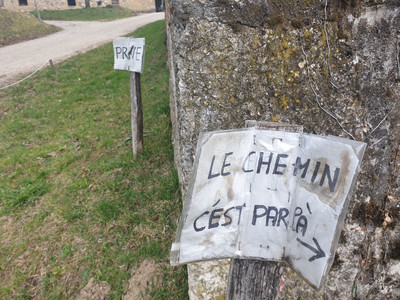 PRIVE
LE CHEMIN
C'ÉST PAR LÀ
→